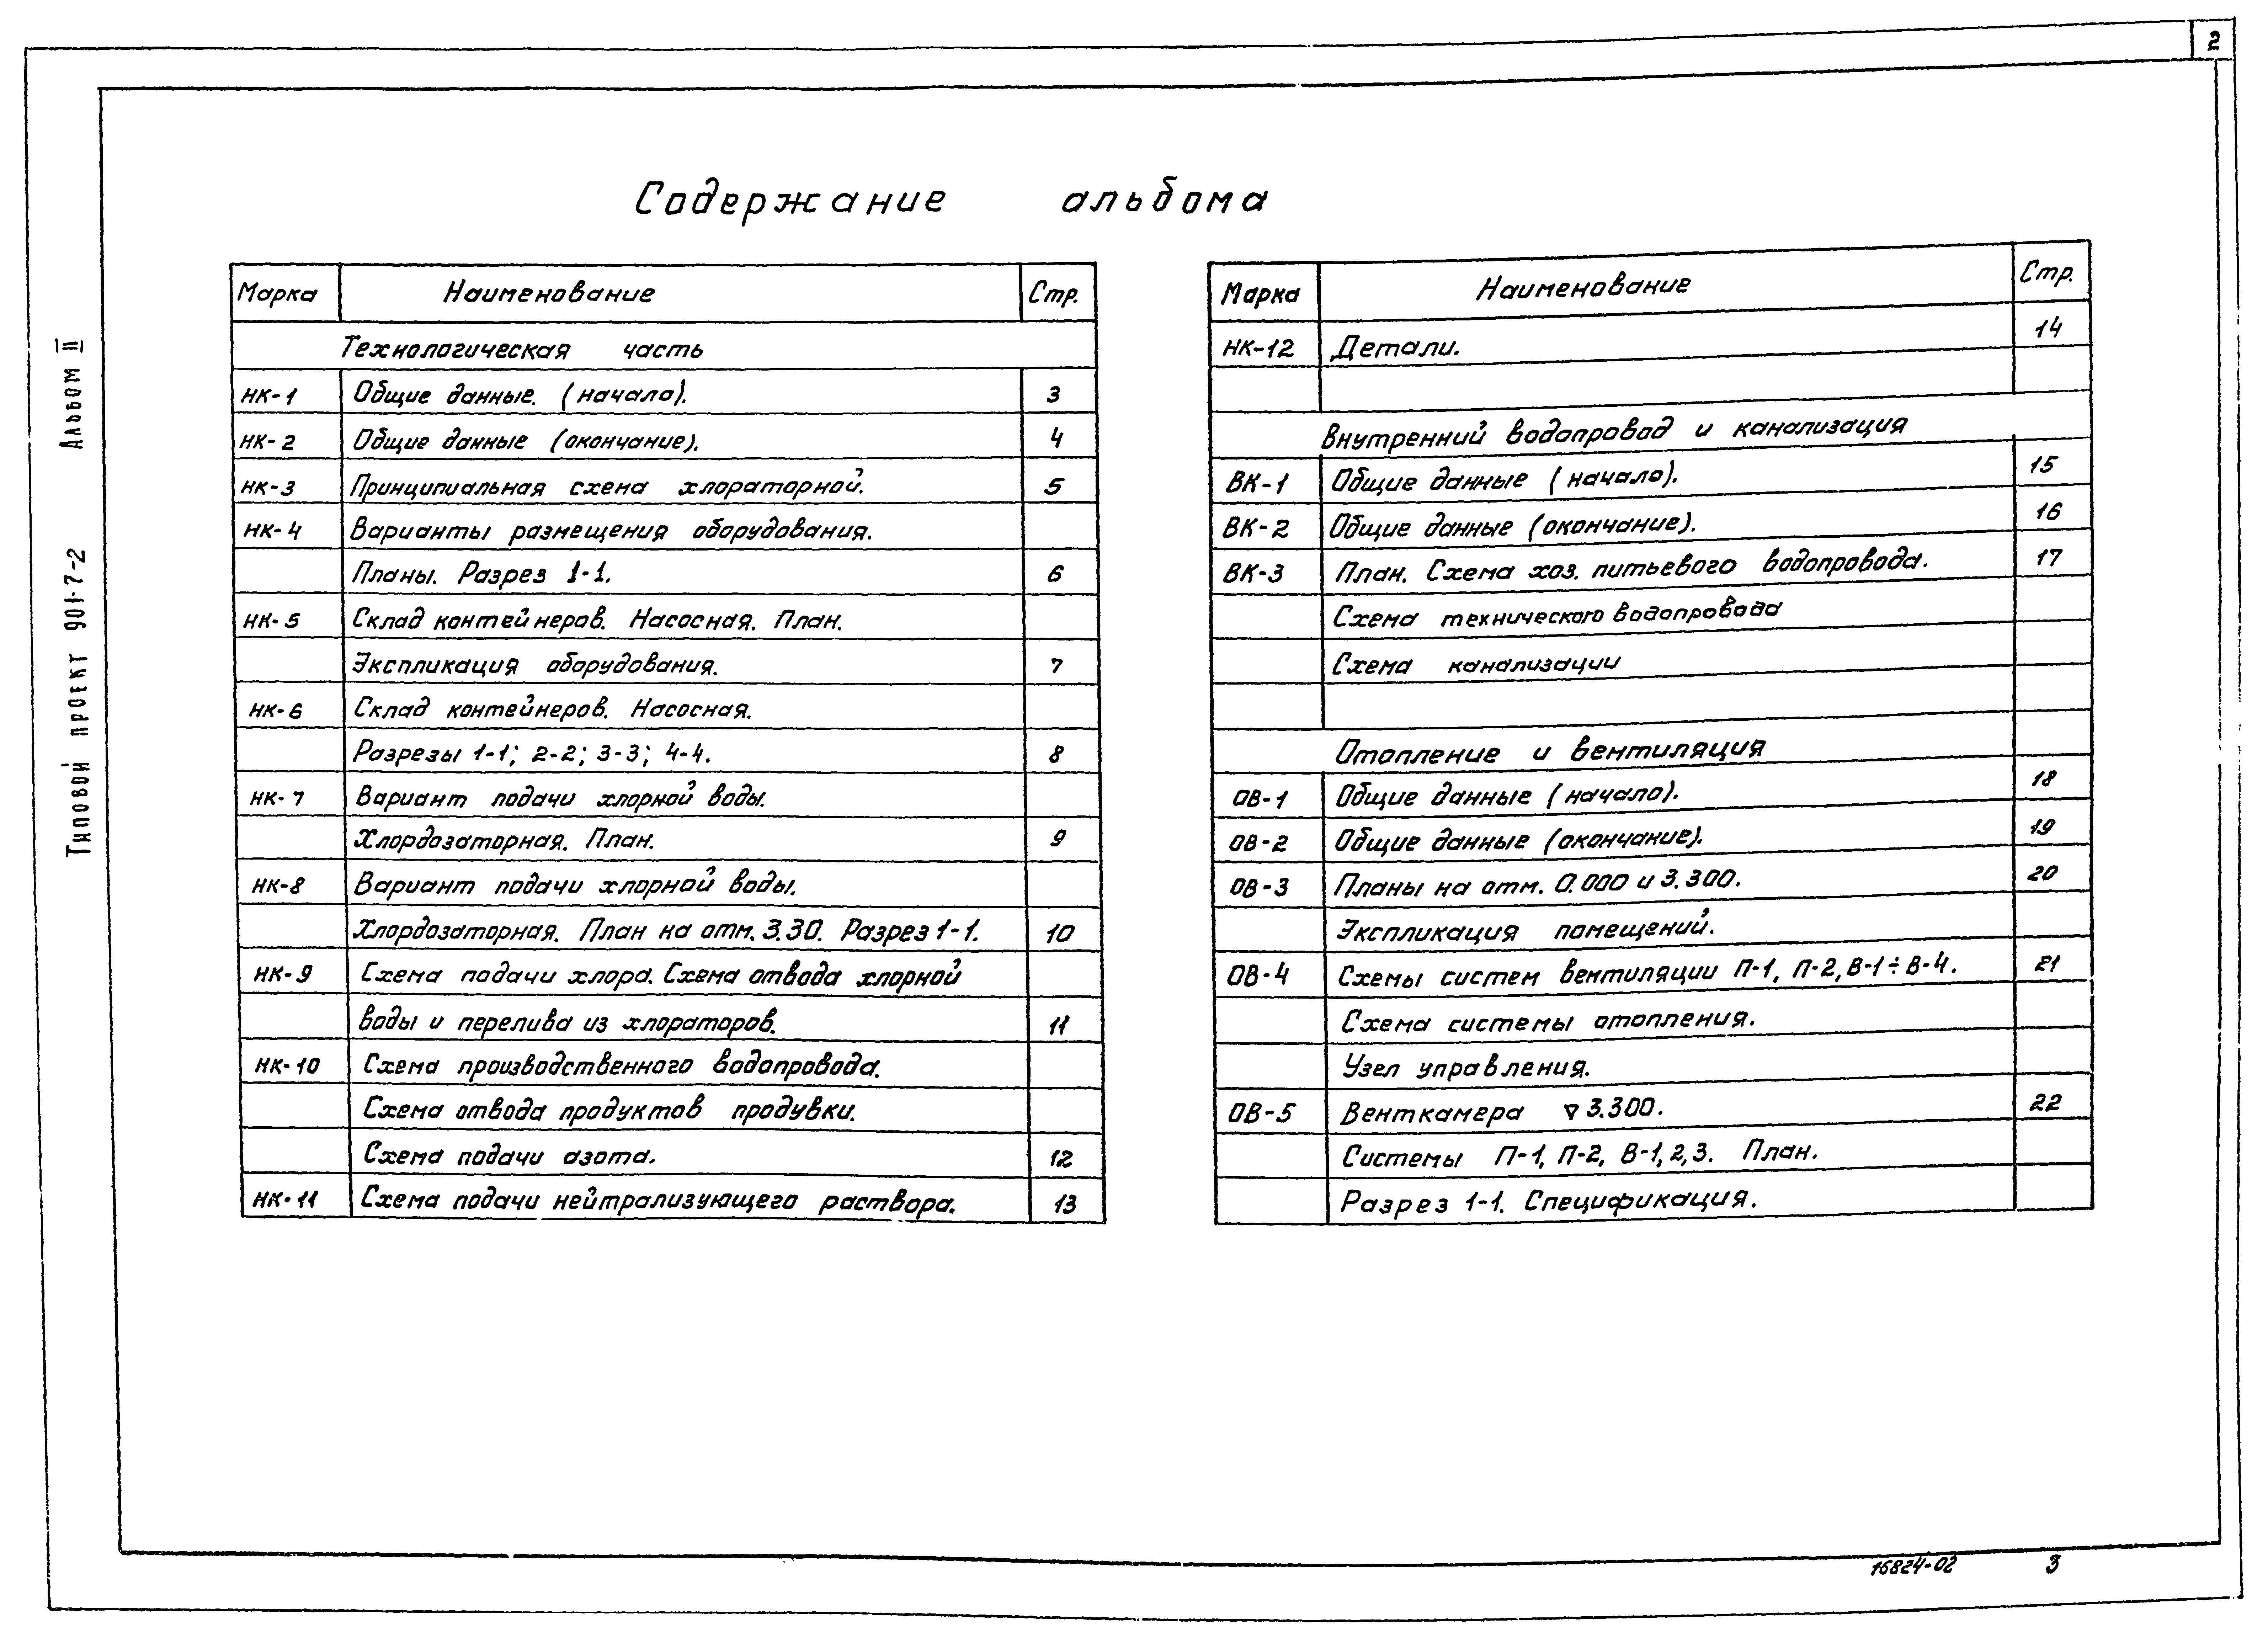 2
Содержание альбома
Типовой проект 901-7-2 Альбом II
Марка Наименование Стр.
Технологическая часть
НК-1 Общие данные. (начало). 3
НК-2 Общие данные (окончание). 4
НК-3 Принципиальная схема хлораторной. 5
НК-4 Варианты размещения оборудования.
Планы. Разрез 1-1. 6
НК-5 Склад контейнеров. Насосная. План.
Экспликация оборудования. 7
НК-6 Склад контейнеров. Насосная.
Разрезы 1-1; 2-2; 3-3; 4-4. 8
НК-7 Вариант подачи хлорной воды.
Хлордозаторная. План. 9
НК-8 Вариант подачи хлорной воды.
Хлордозаторная. План на отм. 3.30. Разрез 1-1. 10
НК-9 Схема подачи хлора. Схема отвода хлорной
воды и перелива из хлораторов. 11
НК-10 Схема производственного водопровода.
Схема отвода продуктов продувки.
Схема подачи азота. 12
НК-11 Схема подачи нейтрализующего раствора. 13
Марка Наименование Стр.
НК-12 Детали. 14
Внутренний водопровод и канализация
ВК-1 Общие данные (начало). 15
ВК-2 Общие данные (окончание). 16
ВК-3 План. Схема хоз. питьевого водопровода. 17
Схема технического водопровода
Схема канализации
Отопление и вентиляция
ОВ-1 Общие данные (начало). 18
ОВ-2 Общие данные (окончание). 19
ОВ-3 Планы на отм. 0.000 и 3.300. 20
Экспликация помещений.
ОВ-4 Схемы систем вентиляции П-1, П-2, В-1÷В-4. 21
Схема системы отопления.
Узел управления.
ОВ-5 Венткамера ▽ 3.300. 22
Системы П-1, П-2, В-1,2,3. План.
Разрез 1-1. Спецификация.
16824-02 3